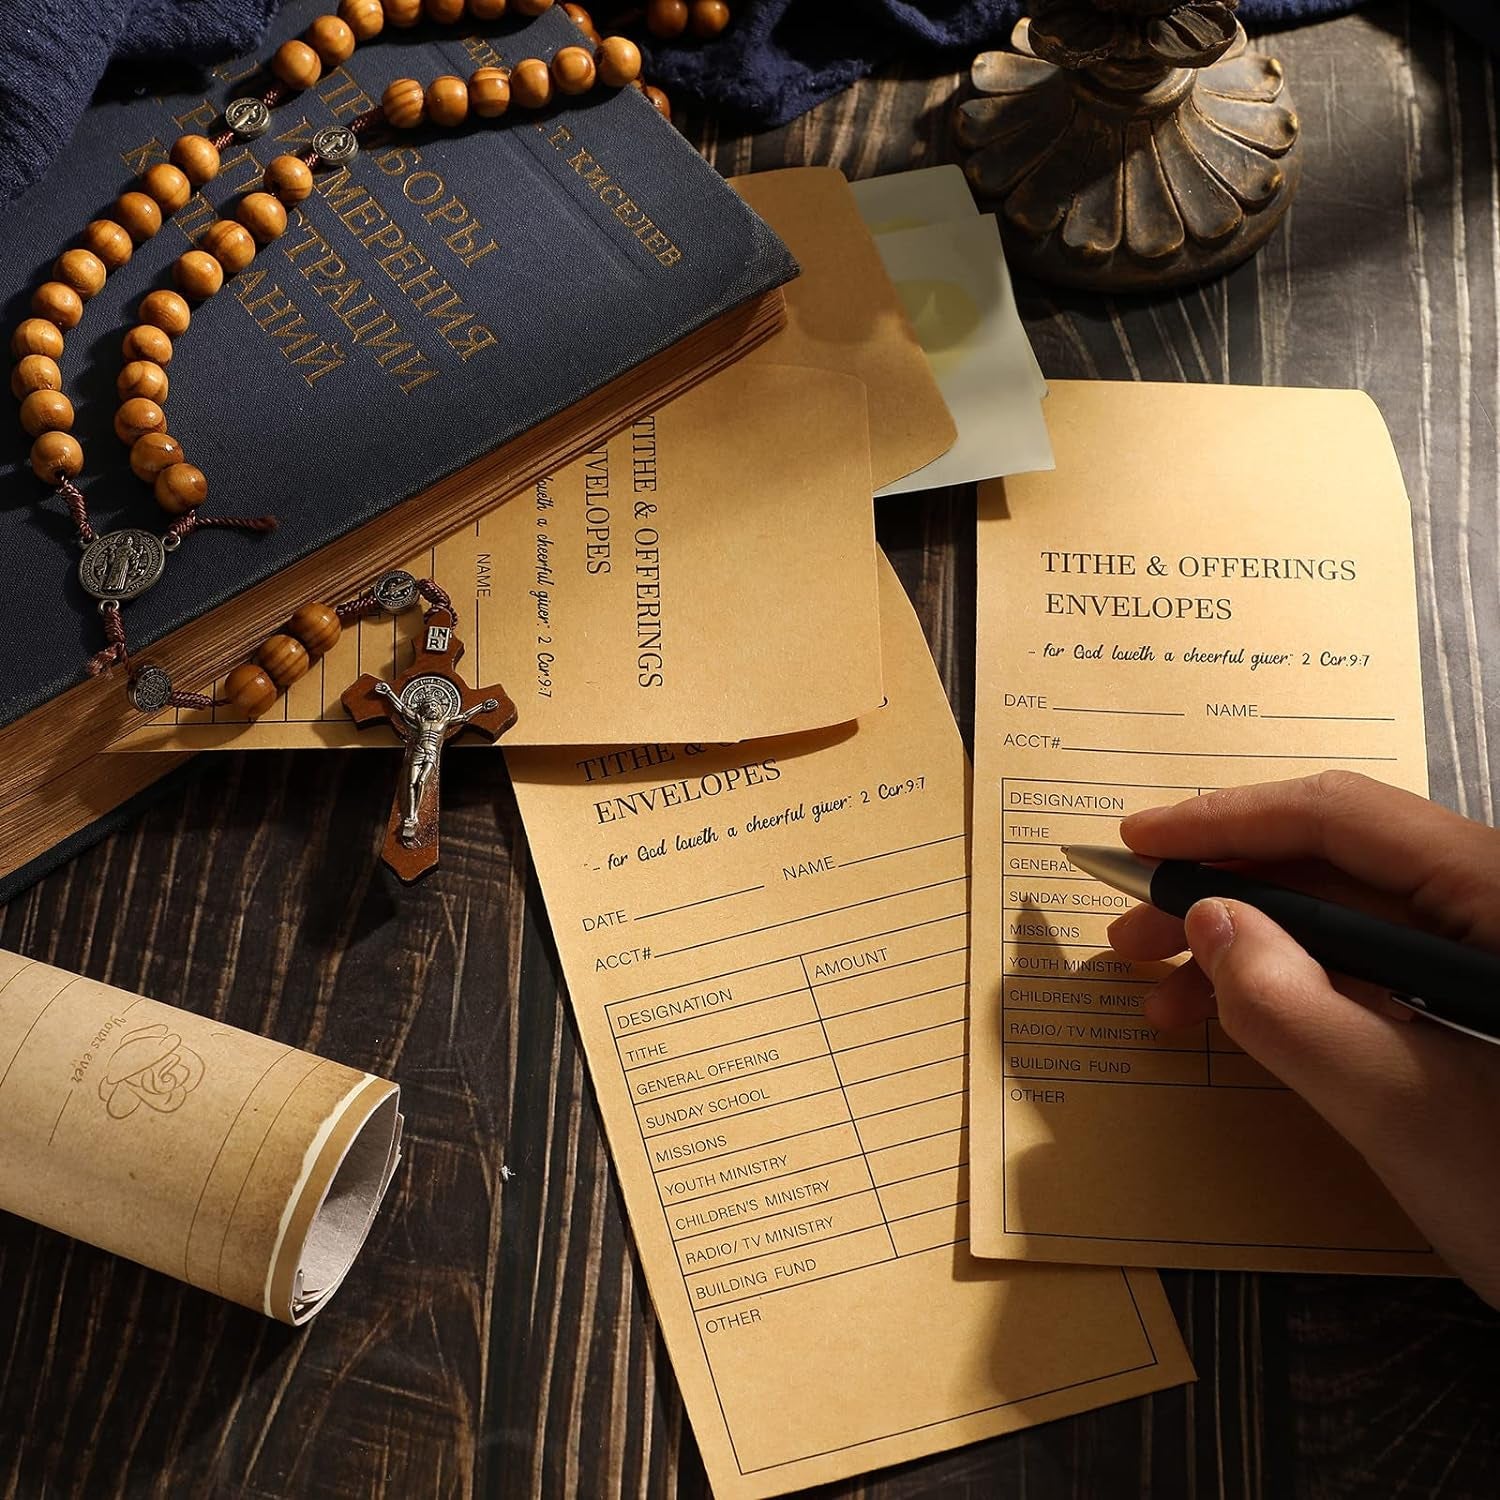 ПРИБОРЫ
ИЗМЕРЕНИЯ
И РЕГИСТРАЦИИ
КОЛЕБАНИЙ
КИСЕЛЕВ
IN
RI
TITHE & OFFERINGS
ENVELOPES
loveth a cheerful giver." 2 Cor.9:7
NAME
TITHE &
ENVELOPES
"... for God loveth a cheerful giver." 2 Cor.9:7
DATE NAME
ACCT#
DESIGNATION AMOUNT
TITHE
GENERAL OFFERING
SUNDAY SCHOOL
MISSIONS
YOUTH MINISTRY
CHILDREN'S MINISTRY
RADIO/ TV MINISTRY
BUILDING FUND
OTHER
TITHE & OFFERINGS
ENVELOPES
.. for God loveth a cheerful giver." 2 Cor.9:7
DATE NAME
ACCT#
DESIGNATION
TITHE
GENERAL
SUNDAY SCHOOL
MISSIONS
YOUTH MINISTRY
CHILDREN'S MINIST
RADIO/ TV MINISTRY
BUILDING FUND
OTHER
Yours ever